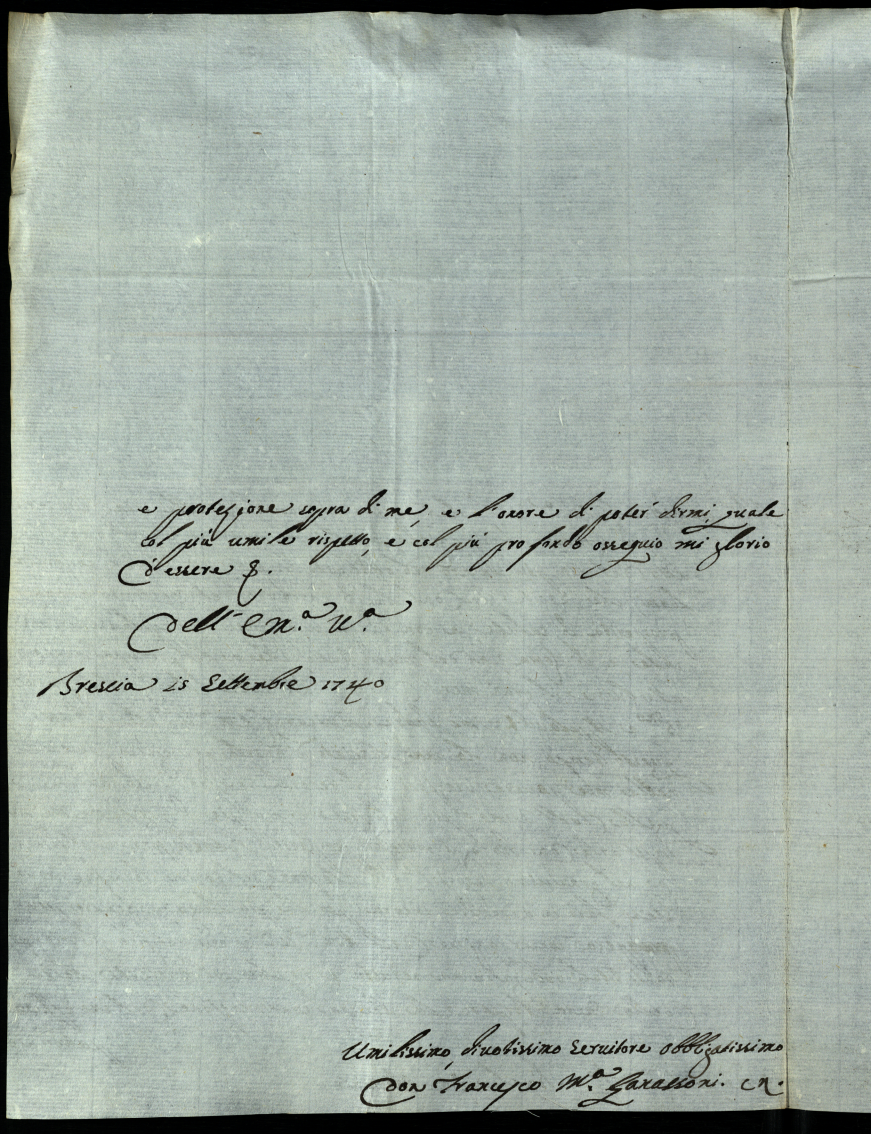 e protezione sopra di me, e l'onore di poter dirmi, quale
col più umile rispetto, e col più profondo ossequio mi glorio
d'essere &.
Dell' Em.ª V.ª
Brescia 15 Settembre 1740
Umilissimo, divotissimo Servitore obbligatissimo
Don Francesco M.ª C.R.